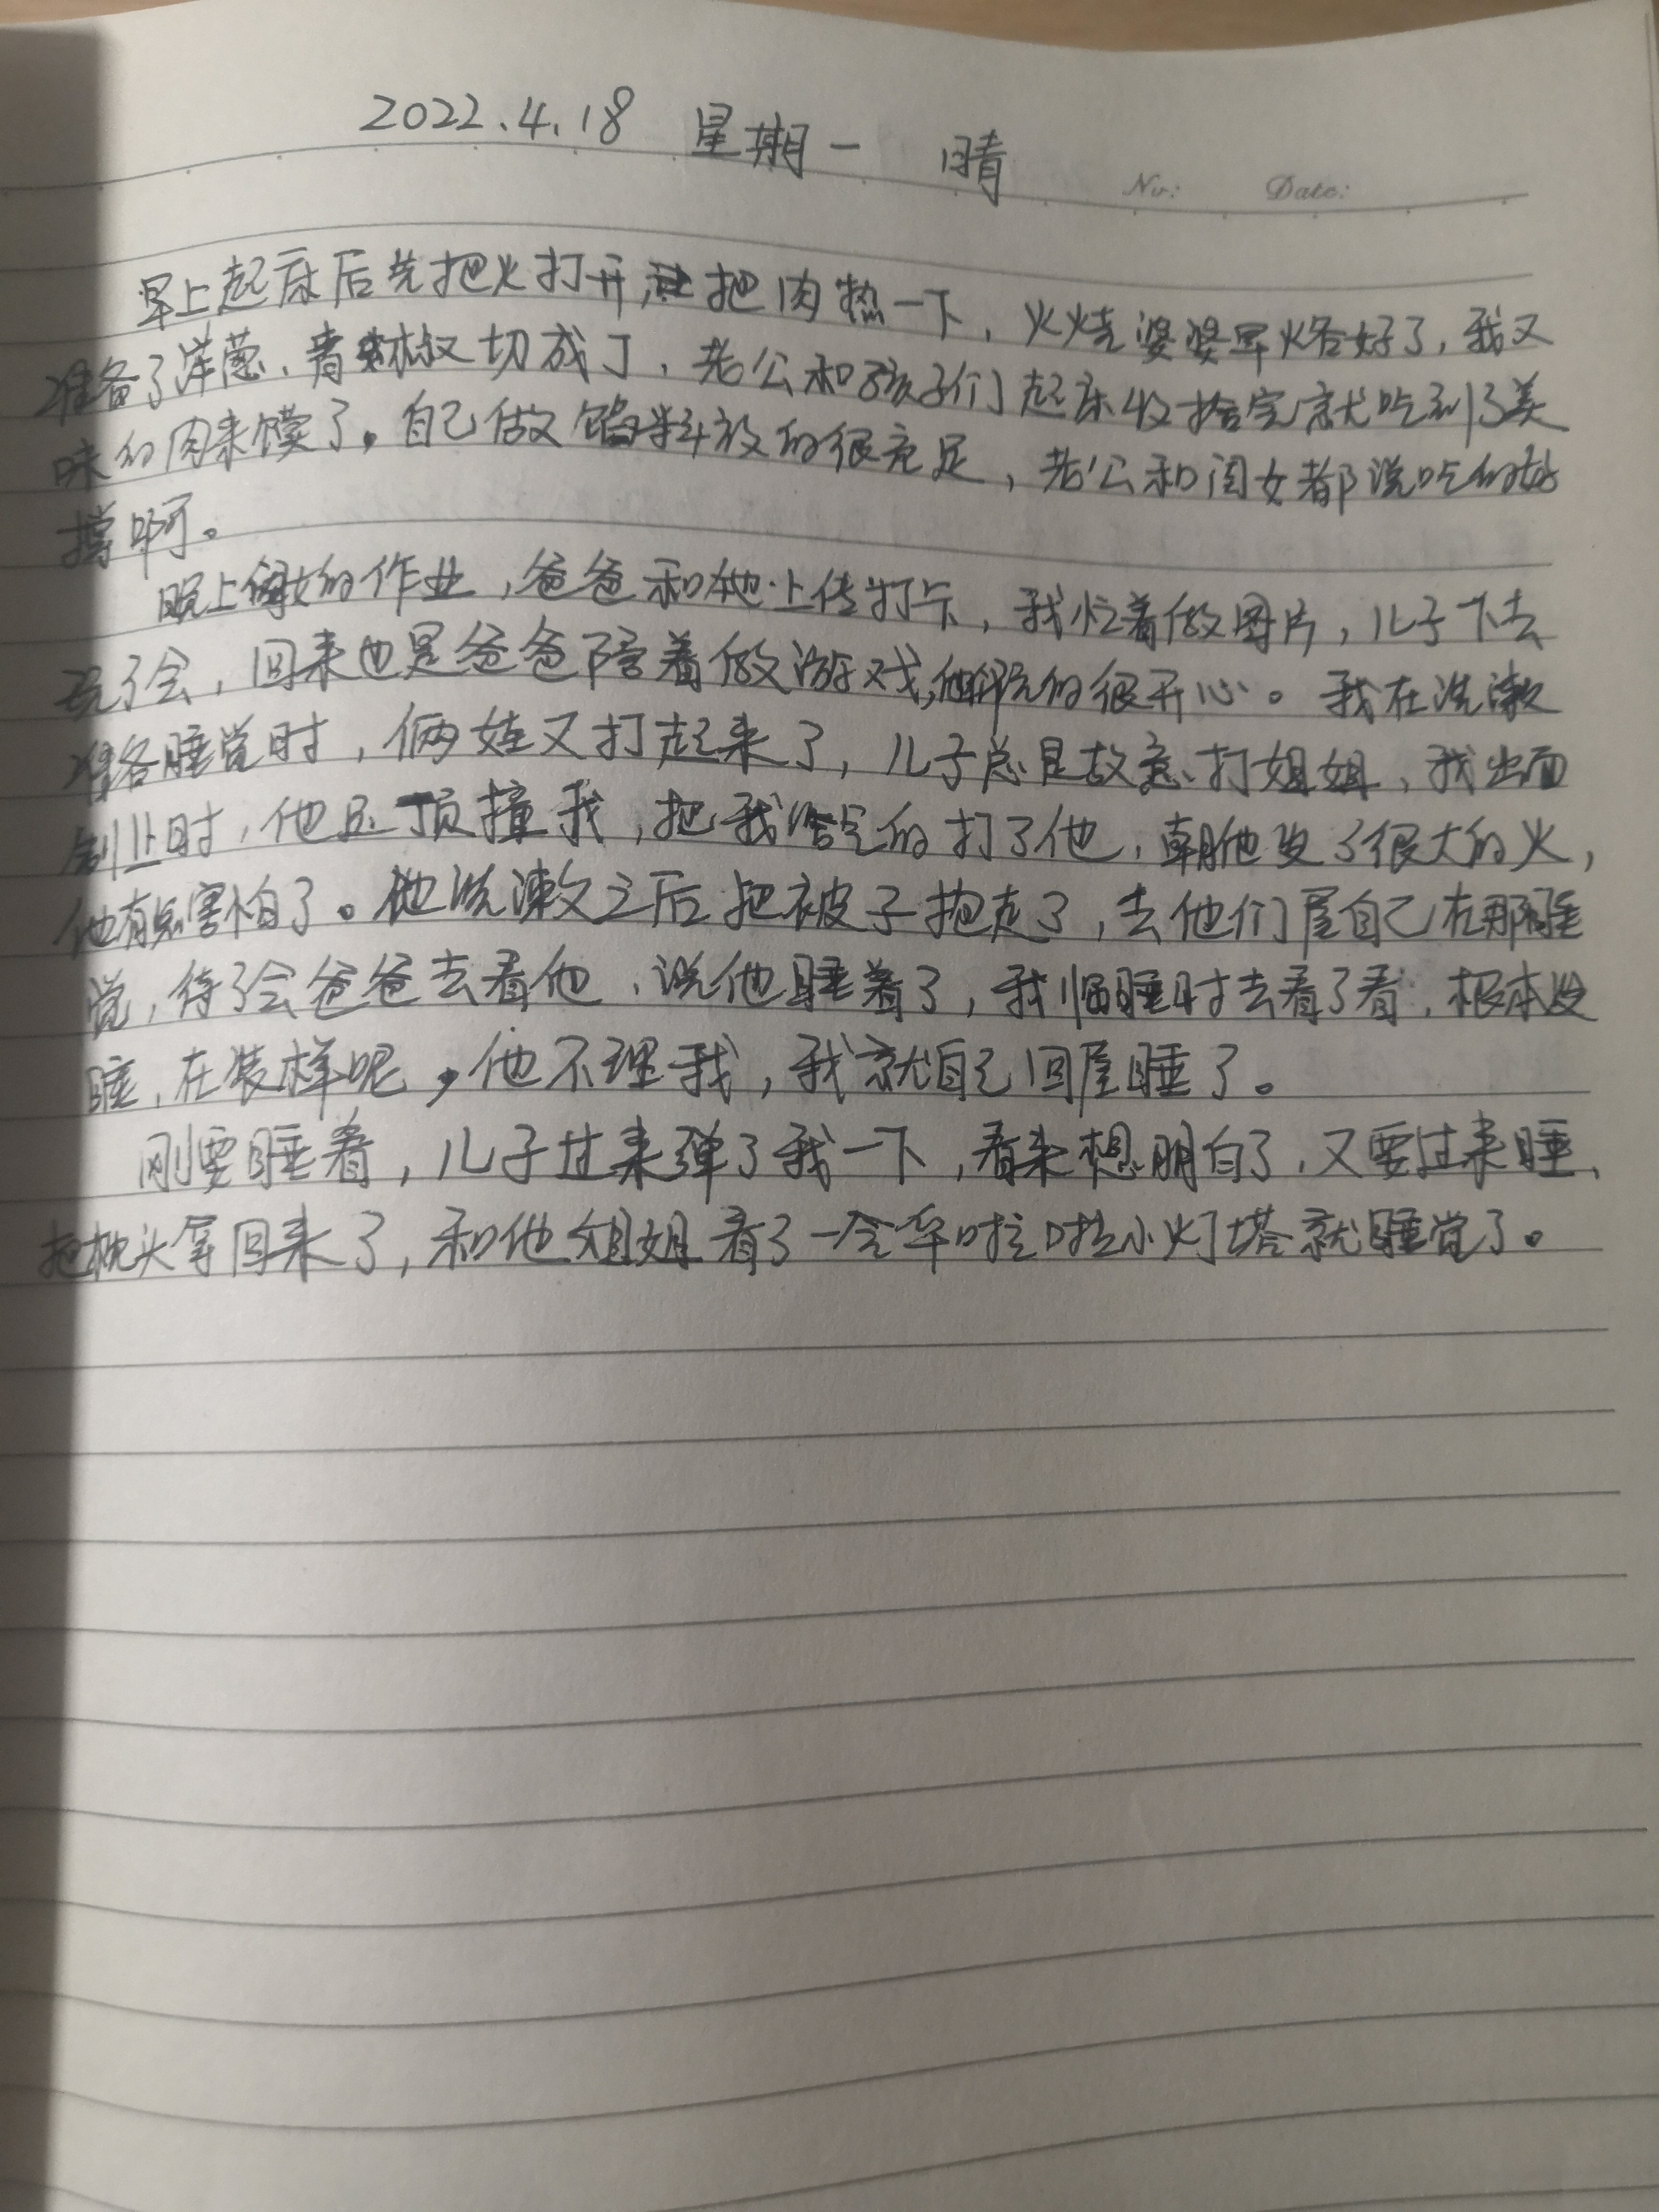 2022.4.18 星期一 晴
No: Date:
早上起床后先把火打开,把肉热一下,火烧婆婆早烙好了,我又
准备了洋葱、青椒切成丁,老公和孩子们起床收拾完就吃到了美
味的肉来馍了。自己做馅料放的很充足,老公和闺女都说吃的好
撑啊。
晚上闺女的作业,爸爸和她上传打卡,我忙着做图片,儿子下去
玩了会,回来也是爸爸陪着做游戏,他俩玩的很开心。我在洗漱
准备睡觉时,俩娃又打起来了,儿子总是故意打姐姐,我出面
制止时,他还顶撞我,把我给气的打了他,朝他发了很大的火,
他有点害怕了。他洗漱之后把被子抱走了,去他们屋自己在那睡
觉,待了会爸爸去看他,说他睡着了,我临睡时去看了看,根本没
睡,在装样呢,他不理我,我就自己回屋睡了。
刚要睡着,儿子过来弹了我一下,看来想明白了,又要过来睡、
把枕头拿回来了,和他姐姐看了一会华啦啦小灯塔就睡觉了。